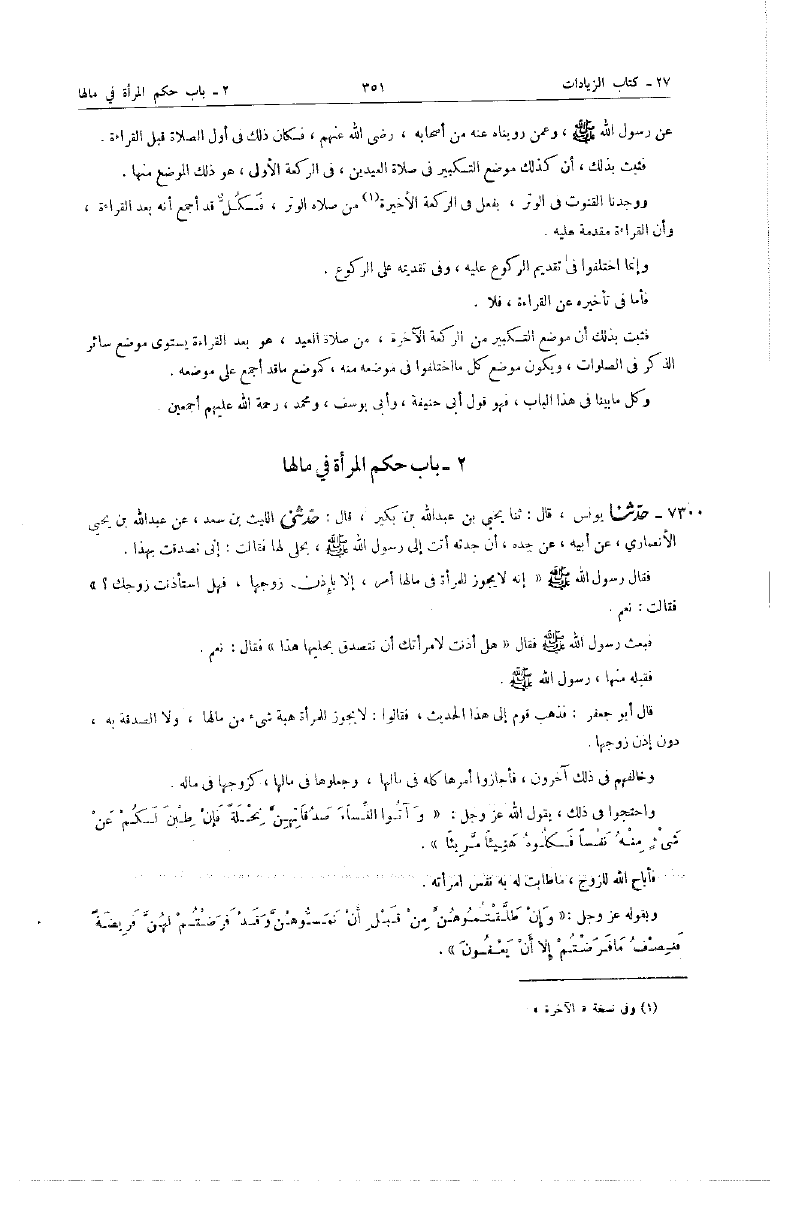 ٢٧ ـ كتاب الزيادات ٣٥١ ٢ ـ باب حكم المرأة في مالها
عن رسول الله ﷺ ، وعمن رويناه عنه من أصحابه ، رضى الله عنهم ، فكان ذلك فى أول الصلاة قبل القراءة .
فثبت بذلك ، أن كذلك موضع التكبير فى صلاة العيدين ، فى الركعة الأولى ، هو ذلك الموضع منها .
ووجدنا القنوت فى الوتر ، يفعل فى الركعة الأخيرة(١) من صلاه الوتر ، فكلٌّ قد أجمع أنه بعد القراءة ،
وأن القراءة مقدمة عليه .
وإنما اختلفوا فى تقديم الركوع عليه ، وفى تقديمه على الركوع .
فأما فى تأخيره عن القراءة ، فلا .
فثبت بذلك أن موضع التكبير من الركعة الآخرة ، من صلاة العيد ، هو بعد القراءة يستوى موضع سائر
الذكر فى الصلوات ، ويكون موضع كل مااختلفوا فى موضعه منه ، كموضع ماقد أجمع على موضعه .
وكل مابينا فى هذا الباب ، فهو قول أبى حنيفة ، وأبى يوسف ، ومحمد ، رحمة الله عليهم أجمعين .
٢ ـ باب حكم المرأة في مالها
٧٣٠٠ ـ حدثنا يونس ، قال : ثنا يحيى بن عبدالله بن بكير ، قال : حدثنى الليث بن سعد ، عن عبدالله بن يحيى
الأنصاري ، عن أبيه ، عن جده ، أن جدته أتت إلى رسول الله ﷺ ، بحلى لها فقالت : إنى تصدقت بهذا .
فقال رسول الله ﷺ « إنه لايجوز للمرأة فى مالها أمر ، إلا بإذن زوجها ، فهل استأذنت زوجك ؟ »
فقالت : نعم .
فبعث رسول الله ﷺ فقال « هل أذنت لامرأتك أن تتصدق بحليها هذا » فقال : نعم .
فقبله منها ، رسول الله ﷺ .
قال أبو جعفر : فذهب قوم إلى هذا الحديث ، فقالوا : لايجوز للمرأة هبة شىء من مالها ، ولا الصدقة به ،
دون إذن زوجها .
وخالفهم فى ذلك آخرون ، فأجازوا أمرها كله فى مالها ، وجعلوها فى مالها ، كزوجها فى ماله .
واحتجوا فى ذلك ، بقول الله عز وجل : « وَآتُوا النِّسَاءَ صَدُقَاتِهِنَّ نِحْلَةً فَإِنْ طِبْنَ لَكُمْ عَنْ
شَىْءٍ مِنْهُ نَفْساً فَكُلُوهُ هَنِيئاً مَّرِيئاً » .
فأباح الله للزوج ، ماطابت له به نفس امرأته .
وبقوله عز وجل : « وَإِنْ طَلَّقْتُمُوهُنَّ مِنْ قَبْلِ أَنْ تَمَسُّوهُنَّ وَقَدْ فَرَضْتُمْ لَهُنَّ فَرِيضَةً
فَنِصْفُ مَافَرَضْتُمْ إِلا أَنْ يَعْفُونَ » .
(١) وفى نسخة « الآخرة »